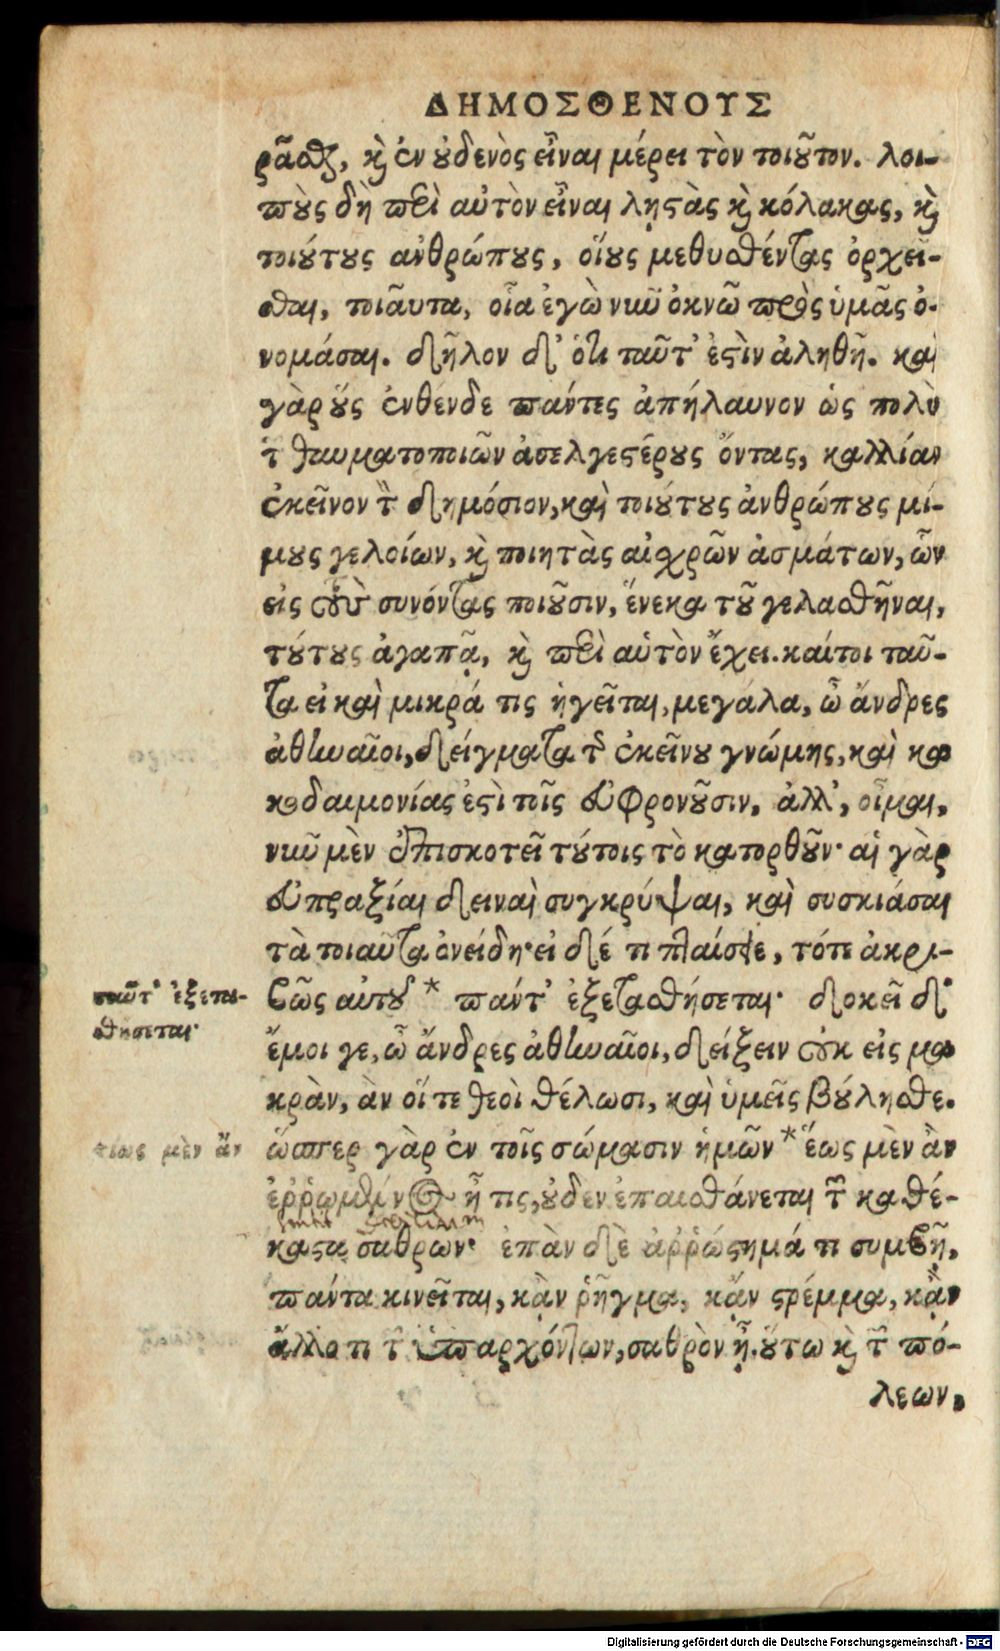 ΔΗΜΟΣΘΕΝΟΥΣ
ρᾶσθαι, καὶ ἐν οὐδενὸς εἶναι μέρει τὸν τοιοῦτον. λοι-
ποὺς δὴ περὶ αὐτὸν εἶναι λῃστὰς καὶ κόλακας, καὶ
τοιούτους ἀνθρώπους, οἵους μεθυσθέντας ὀρχεῖ-
σθαι, τοιαῦτα, οἷα ἐγὼ νῦν ὀκνῶ πρὸς ὑμᾶς ὀ-
νομάσαι. δῆλον δ' ὅτι ταῦτ' ἐστὶν ἀληθῆ. καὶ
γὰρ οὓς ἐνθένδε πάντες ἀπήλαυνον ὡς πολὺ
τῶν θαυματοποιῶν ἀσελγεστέρους ὄντας, καλλίαν
ἐκεῖνον τὸν δημόσιον, καὶ τοιούτους ἀνθρώπους μί-
μους γελοίων, καὶ ποιητὰς αἰσχρῶν ἀσμάτων, ὧν
εἰς τοὺς συνόντας ποιοῦσιν, ἕνεκα τοῦ γελασθῆναι,
τούτους ἀγαπᾷ, καὶ περὶ αὑτὸν ἔχει. καίτοι ταῦ-
τα εἰ καὶ μικρά τις ἡγεῖται, μεγάλα, ὦ ἄνδρες
ἀθηναῖοι, δείγματα τῆς ἐκείνου γνώμης, καὶ κα
κοδαιμονίας ἐστὶ τοῖς εὐφρονοῦσιν, ἀλλ', οἶμαι,
νῦν μὲν ἐπισκοτεῖ τούτοις τὸ κατορθοῦν· αἱ γὰρ
εὐπραξίαι δειναὶ συγκρύψαι, καὶ συσκιάσαι
τὰ τοιαῦτα ὀνείδη· εἰ δέ τι πταίσειε, τότε ἀκρι-
βῶς αὐτοῦ * πάντ' ἐξετασθήσεται· δοκεῖ δ'
ταῦτ' ἐξετα-
σθήσεται·
ἔμοι γε, ὦ ἄνδρες ἀθηναῖοι, δείξειν οὐκ εἰς μα
κρὰν, ἂν οἵ τε θεοὶ θέλωσι, καὶ ὑμεῖς βούλησθε.
ὥσπερ γὰρ ἐν τοῖς σώμασιν ἡμῶν * ἕως μὲν ἂν
τέως μὲν ἂν
ἐῤῥωμένος ᾖ τις, οὐδὲν ἐπαισθάνεται τῶν καθέ-
καστα σαθρῶν· ἐπὰν δὲ ἀῤῥώστημά τι συμβῇ,
πάντα κινεῖται, κἂν ῥῆγμα, κἂν στρέμμα, κἂν
ἄλλο τι τῶν ὑπαρχόντων, σαθρὸν ᾖ. οὕτω καὶ τῶν πό-
λεων,
Digitalisierung gefördert durch die Deutsche Forschungsgemeinschaft - DFG